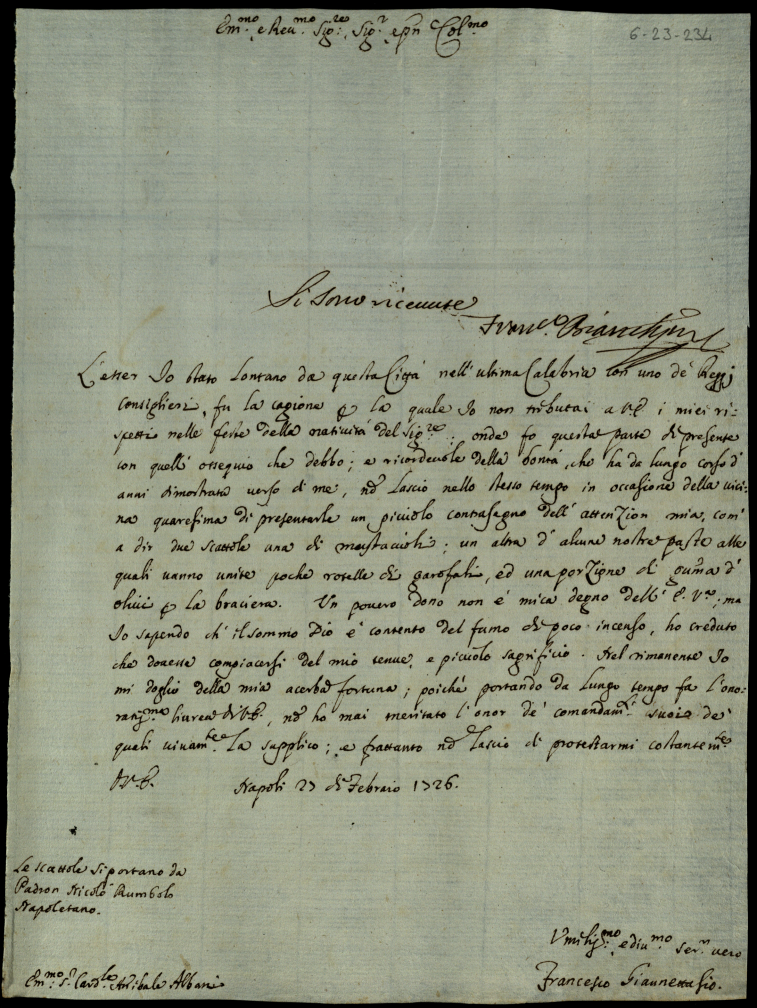 Em.mo e Reu.mo Sig.re, Sig.r e pñ Col.mo
6-23-234
Si sono riceuute
Franc.o Bianchini
L'esser Io stato Lontano da questa Città nell'ultima Calabria con uno de' Reggj
Consiglieri, fu la cagione p la quale Io non tributai a V.E. i miei ri-
spetti nelle feste della natiuità del Sig.re; onde fo questa parte di presente
con quell'ossequio che debbo; e ricordeuole della bontà, che ha da lungo corso d'
anni dimostrata verso di me, nõ Lascio nello stesso tempo in occasione della vici-
na quaresima di presentarle un picciolo contrasegno dell'attenzion mia, com'
a dir due scattole una di mostaccioli; un altra d'alcune nostre paste alle
quali vanno unite poche roselle di garofali, ed una porzione di gum̃a d'
oliui p la braciera. Un pouero dono non è mica degno dell'E. V.ra; ma
Io sapendo ch'il sommo Dio è contento del fumo di poco incenso, ho creduto
che douesse compiacersi del mio tenue, e picciolo sagrificio. Nel rimanente Io
mi doglio della mia acerba fortuna; poiché portando da Lungo tempo fa l'ono-
ratiss.mo liurea di V.E., nõ ho mai meritato l'onor de' comandam.ti suoi, de'
quali viuam.te La supplico; e frattanto nõ lascio di protestarmi costantem.te
D.V.E. Napoli 23 di Febraio 1726.
Le scattole si portano da
Padron Nicolò Rumbolo
Napoletano.
Vmiliss.mo, e diu.mo ser.re vero
Em.mo S.r Card.le Anibale Albani
Francesco Giannettasio.